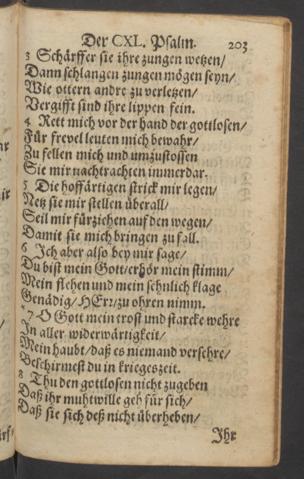 Der CXL. Psalm. 203
3 Schärffer sie ihre zungen wetzen/
Dann schlangen zungen mögen seyn/
Wie ottern andre zu verletzen/
Vergifft sind ihre lippen fein.
4 Rett mich vor der hand der gottlosen/
Für frevel leuten mich bewahr/
Zu fellen mich und umzustossen
Sie mir nachtrachten immerdar.
5 Die hoffärtigen strick mir legen/
Netz sie mir stellen überall/
Seil mir fürziehen auf den wegen/
Damit sie mich bringen zu fall.
6 Ich aber also bey mir sage/
Du bist mein Gott/erhör mein stimm/
Mein flehen und mein sehnlich klage
Genädig/HErr/zu ohren nimm.
* 7 O Gott mein trost und starcke wehre
In aller widerwärtigkeit/
Mein haubt/daß es niemand versehre/
Beschirmest du in kriegeszeit.
8 Thu den gottlosen nicht zugeben
Daß ihr muhtwille geh für sich/
Daß sie sich deß nicht überheben/
Ihr